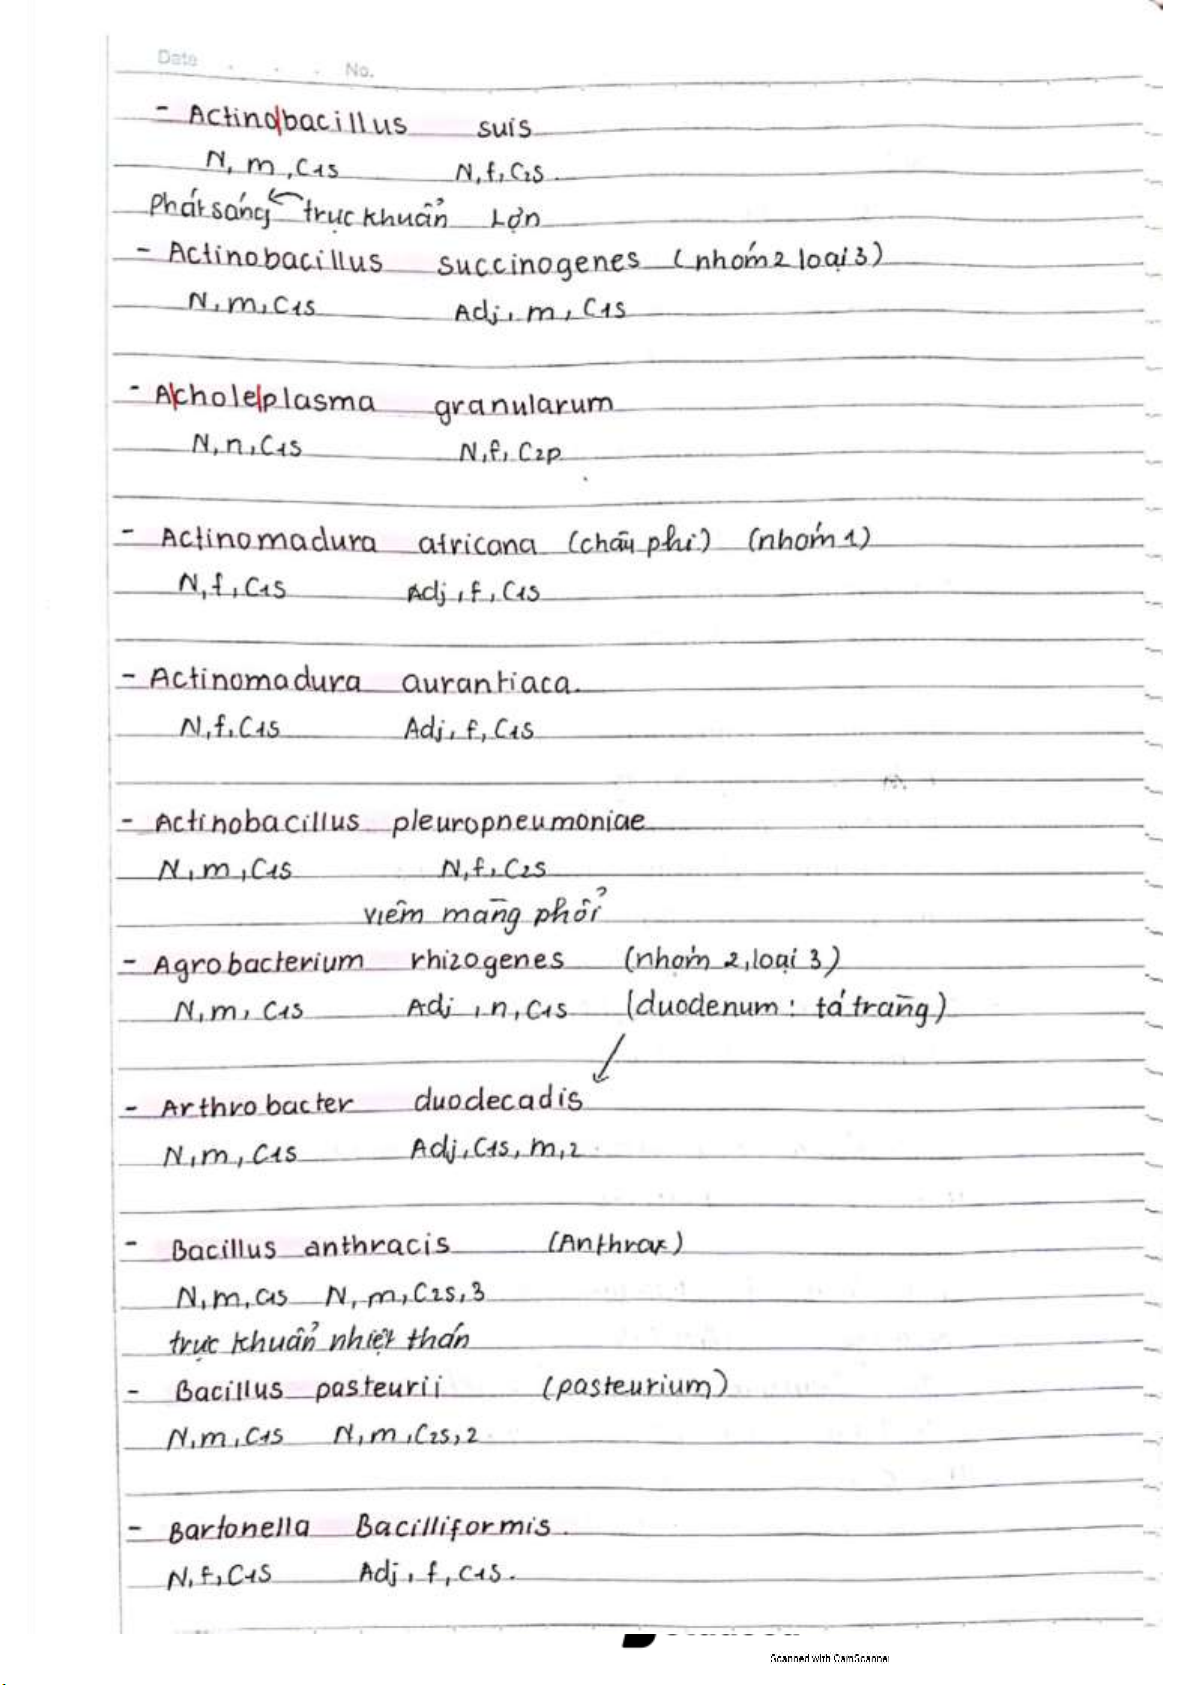 Date . . . No.
- Actinobacillus suis
N, m, C1s N, f, C2s
Phát sáng trực khuẩn Lợn
- Actinobacillus succinogenes (nhóm 2 loại 3)
N, m, C1s Adj, m, C1s
- Acholeplasma granularum
N, n, C1s N, f, C2p
- Actinomadura africana (châu phi) (nhóm 1)
N, f, C1s Adj, f, C1s
- Actinomadura aurantiaca.
N, f, C1s Adj, f, C1s
- Actinobacillus pleuropneumoniae
N, m, C1s N, f, C2s
viêm màng phổi
- Agrobacterium rhizogenes (nhóm 2, loại 3)
N, m, C1s Adj, n, C1s (duodenum: tá tràng)
- Arthrobacter duodecadis
N, m, C1s Adj, C1s, m, 2
- Bacillus anthracis (Anthrax)
N, m, C1s N, m, C2s, 3
trực khuẩn nhiệt thán
- Bacillus pasteurii (pasteurium)
N, m, C1s N, m, C2s, 2
- Bartonella Bacilliformis.
N, f, C1s Adj, f, C1s.
Scanned with CamScanner